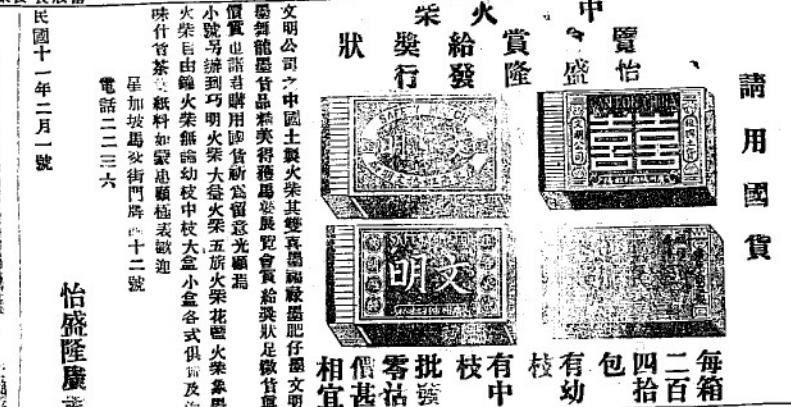 請用國貨
中 火柴
覽 賞給獎狀
怡盛隆發行
文明公司
文明
每箱
二百
四拾
包
有幼
枝
有中
枝
批發
零沽
價甚
相宜
文明公司之中國土製火柴其雙喜墨福祿墨肥仔墨文明
墨舞龍墨貨品精美得獲馬婆展覽會賞給獎狀足徵貨真
價實也諸君購用國貨祈為留意光顧焉
小號另辦到巧明火柴大益火柴五旂火柴花籃火柴象墨
火柴自由鐘火柴無論幼枝中枝大盒小盒各式俱備及
味什貨茶 紙料如蒙惠顧極表歡迎
星加坡馬 街門牌 十二號
電話二二三六
怡盛隆廣
民國十一年二月一號